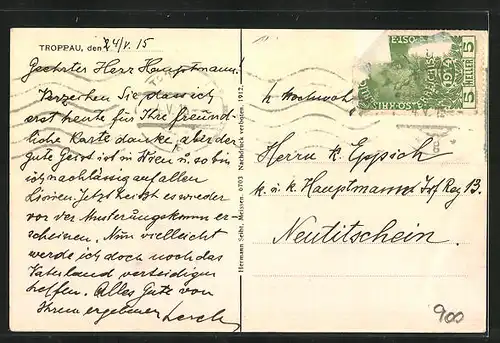 TROPPAU, den 24/V. 15
Geehrter Herr Hauptmann!
Verzeihen Sie dass ich
erst heute für Ihre freund-
liche Karte danke, aber der
gute Geist ist in Wien u. so bin
ich nachlässig auf allen
Linien. Jetzt heisst es wieder
vor der Musterungskomm er-
scheinen. Nun vielleicht
werde ich doch noch das
Vaterland verteidigen
helfen. Alles Gute von
Ihrem ergebenen Lerch
Hermann Seibt, Meissen. 6703 Nachdruck verboten. 1912.
5 HELLER 5
1914
Herrn k. Eppich
k. u. k. Hauptmann Inf Reg 13.
Neutitschein.
900